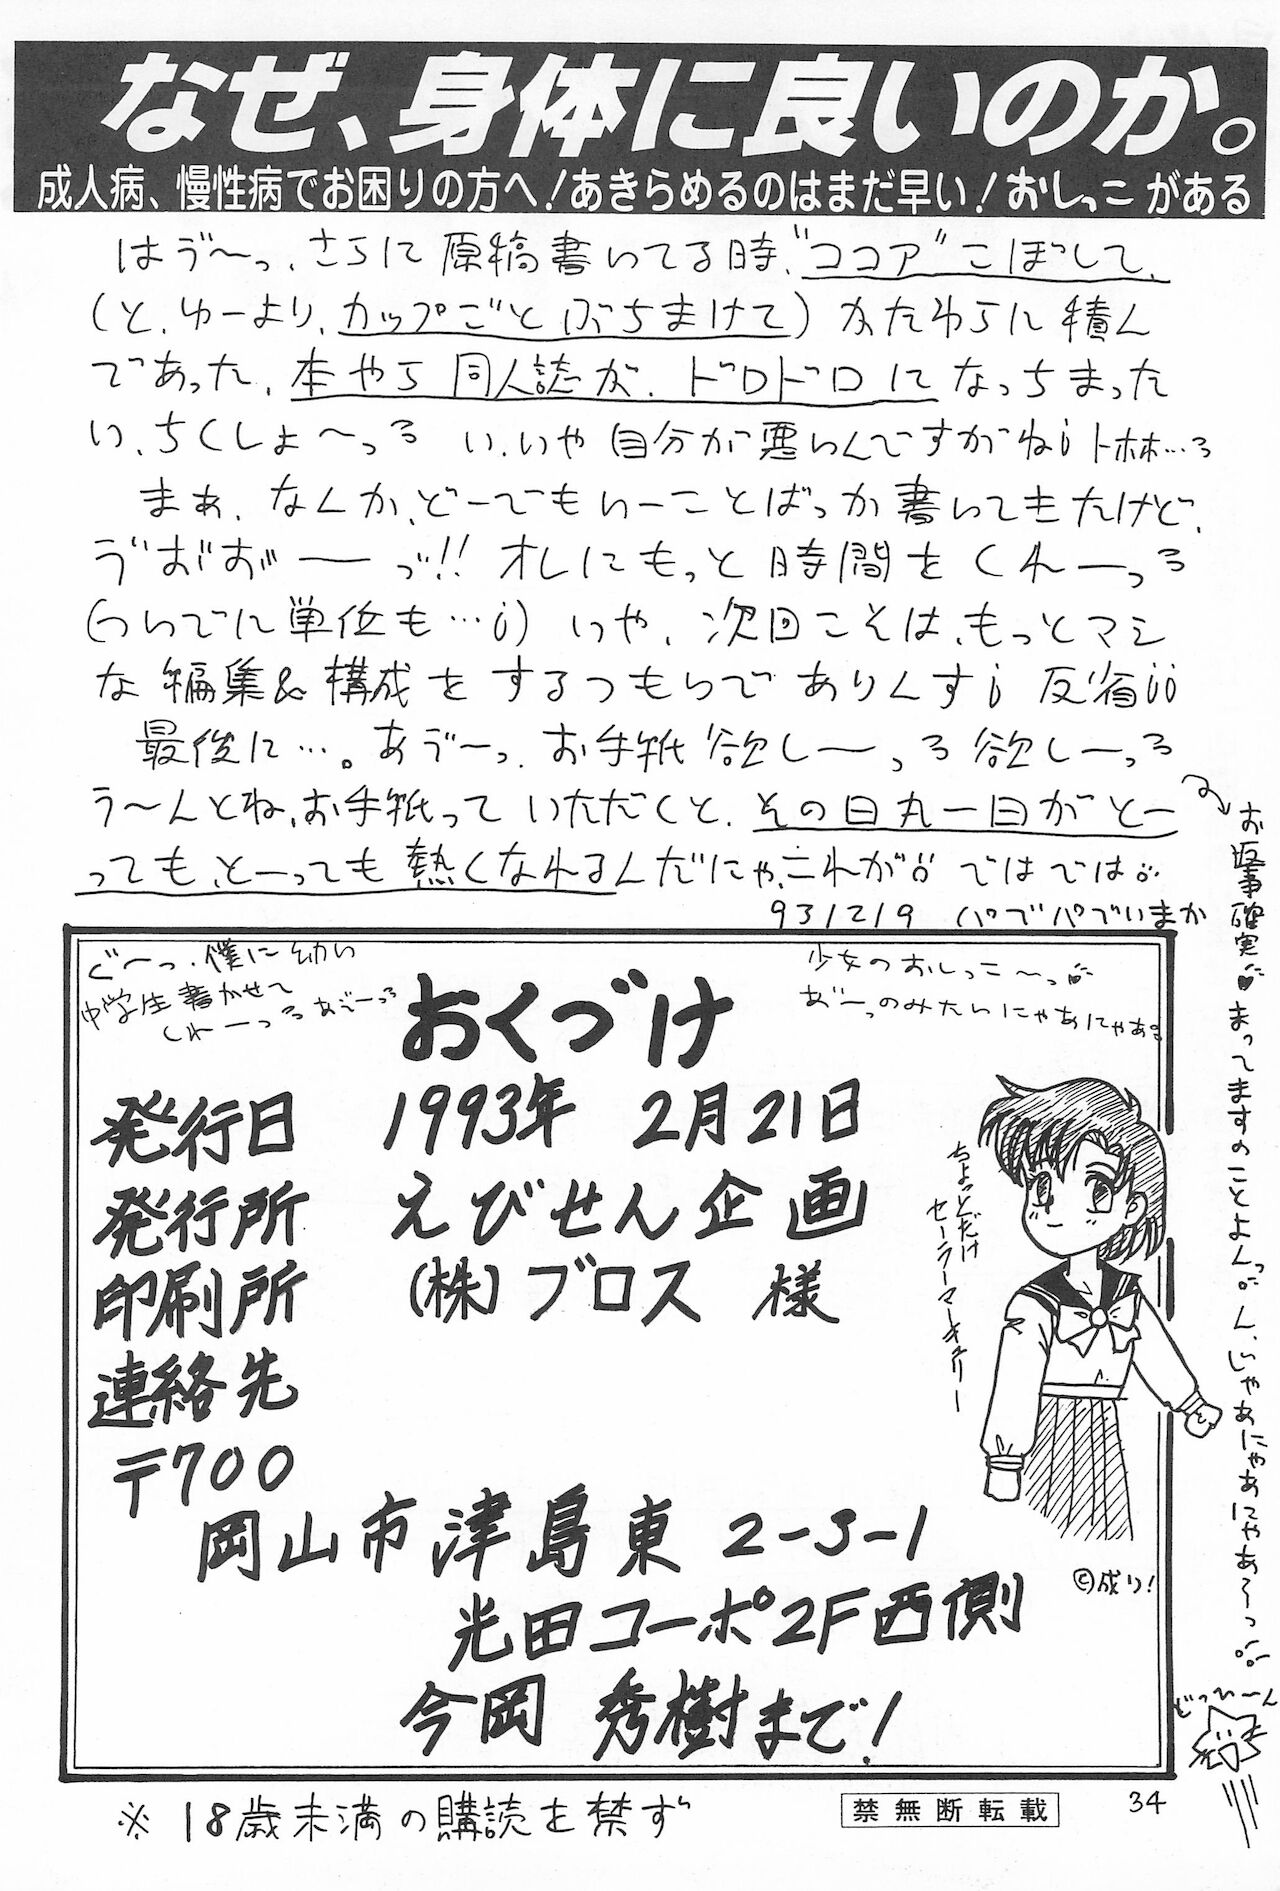 なぜ、身体に良いのか。
成人病、慢性病でお困りの方へ!あきらめるのはまだ早い!おしっこがある
はゔ〜っ、さらに原稿書いてる時、"ココア"こぼして、
(と、ゆーより、カップごとぶちまけて)かたわらに積ん
であった、本やら同人誌が、ドロドロになっちまった
い、ちくしょ〜っろ い、いや自分が悪いんですがね¡トホホ…ろ
まぁ、なんか、どーでもいーことばっか書いてきたけど、
ゔおおーっ!! オレにもっと時間をくれーっろ
(ついでに単位も…¡) いや、次回こそは、もっとマシ
な編集&構成をするつもりでありんす¡ 反省¡¡
最後に…。あゔ〜っ、お手紙欲しーっろ欲しーっろ
う〜んとね、お手紙っていただくと、その日丸一日がとー
っても、とーっても熱くなれるんだにゃ、これが ではでは
931219 パブパブいまか
お返事確実 まってますのことよんっ ん、いやあにゃあにゃあ〜っ
どっひ〜ん
おくづけ
発行日 1993年 2月21日
発行所 えびせん企画
印刷所 (株)ブロス 様
連絡先
〒700
岡山市津島東 2-3-1
光田コーポ2F西側
今岡 秀樹まで!
ちょっとだけ
セーラーマーキュリー
©成り!
※18歳未満の購読を禁ず
禁無断転載
34